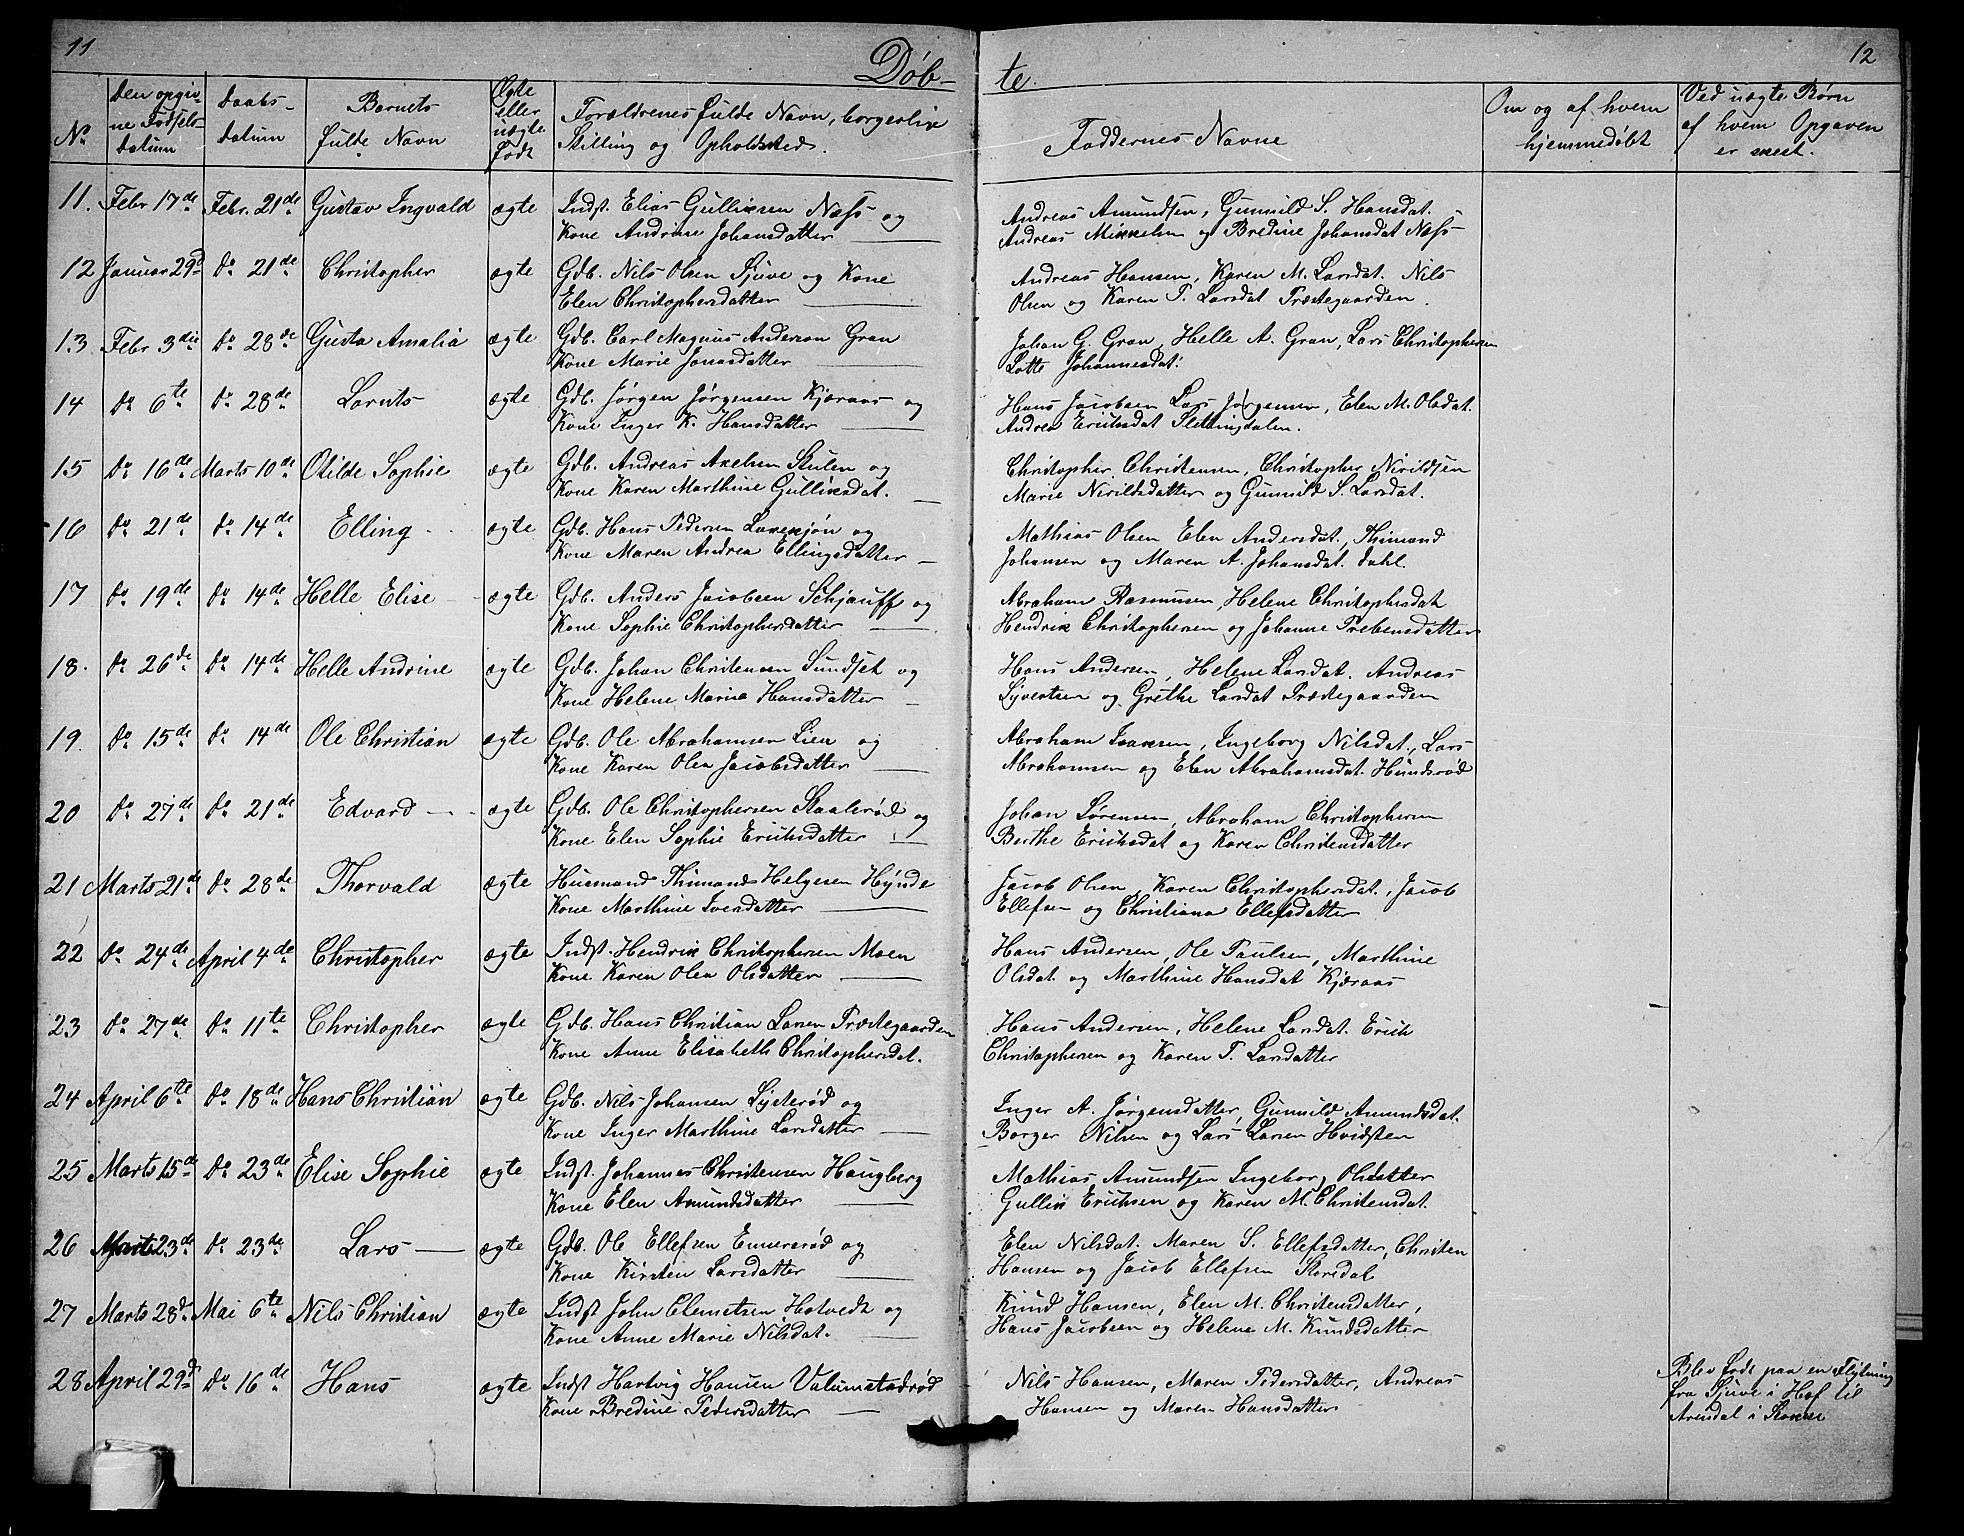 11
12
Døb-
te.
No
Den opgiv-
ne Fødsels-
datum
Daabs-
datum
Barnets
fulde Navn
Ægte
eller
uægte
født
Forældrenes fulde Navn, borgerlige
Stilling og Opholdssted.
Faddernes Navne
Om og af hvem
hjemmedøbt
Ved uægte Børn
af hvem Opgaven
er skeet.
11. Febr 17de Febr. 21de Gustav Ingvald ægte Indst. Elias Gulliksen Næss og
Kone Andrine Johansdatter
Andreas Amundsen, Gunnild S. Hansdat.
Andreas Mikkelsen og Bredine Johansdat Næss
12 Januar 29d Do 21de Christopher ægte Gdb. Nils Olsen Tjuve og Kone
Elen Christophersdatter
Andreas Hansen, Karen M. Larsdat. Nils
Olsen og Karen T. Larsdat Præstegaarden.
13 Febr 3die Do 28de Gusta Amalia ægte Gdb. Carl Magnus Anderson Gran
Kone Marie Jonasdatter
Johan G. Gran, Helle A. Gran, Lars Christophersen
Lotte Johannesdat.
14 Do 6te Do 28de Laruts ægte Gdb. Jørgen Jørgensen Kjæraas og
Kone Inger K. Hansdatter
Hans Jacobsen Lars Jørgensen, Elen M. Olsdat.
Andrea Erichsdat
15 Do 16de Marts 10de Otilde Sophie ægte Gdb. Andreas Axelsen Skulen og
Kone Karen Marthine Gulliksdat.
Christopher Christensen, Christopher Nirildsen
Marie Nirildsdatter og Gunnild S. Larsdat.
16 Do 21de Do 14de Elling ægte Gdb. Hans Pedersen og
Kone Maren Andrea Ellingsdatter
Mathias Olsen Elen Andersdat., Thimand
Johansen og Maren A. Johansdat. Dahl.
17 Do 19de Do 14de Helle Elise ægte Gdb. Anders Jacobsen Schjauff og
Kone Sophie Christophersdatter
Abraham Rasmusen, Helene Christophersdat
Hendrik Christophersen og Johanne Prebensdatter
18. Do 26de Do 14de Helle Andrine ægte Gdb. Johan Christensen Sundset og
Kone Helene Maria Hansdatter
Hans Andersen, Helene Larsdat. Andreas
Syvertsen og Grethe Larsdat Præstegaarden
19. Do 15de Do 14de Ole Christian ægte Gdb. Ole Abrahamsen Lien og
Kone Karen Olea Jacobsdatter
Abraham Isaksen, Ingeborg Nilsdat., Lars
Abrahamsen og Elen Abrahamsdat. Hundsrød
20 Do 27de Do 21de Edvard ægte Gdb. Ole Christophersen Skaalerød og
Kone Elen Sophie Erichsdatter
Johan Sørensen, Abraham Christophersen
Berthe Erichsdat og Karen Christensdatter
21 Marts 21de Do 28de Thorvald ægte Husmand Thimand Helgesen Hynde
Kone Marthine Iversdatter
Jacob Olsen, Karen Christophersdat., Jacob
Ellefsen og Christiana Ellefsdatter
22 Do 24de April 4de Christopher ægte Indst. Hendrik Christophersen Moen
Kone Karen Olea Olsdatter
Hans Andersen, Ole Paulsen, Marthine
Olsdat og Marthine Hansdat Kjæraas
23 Do 27de Do 11te Christopher ægte Gdb. Hans Christian Larsen Præstegaarden
Kone Anne Elisabeth Christophersdat.
Hans Andersen, Helene Larsdat. Erich
Christophersen og Karen T. Larsdatter
24 April 6te Do 18de Hans Christian ægte Gdb. Nils Johansen Lysterød og
Kone Inger Marthine Larsdatter
Inger A. Jørgensdatter, Gunnild Amundsdat.
Borger Nilsen og Lars Larsen Hvidsten
25 Marts 15de Do 23de Elise Sophie ægte Indst. Johannes Christensen Haugberg
Kone Elen Amundsdatter
Mathias Amundsen Ingeborg Olsdatter
Gullik Erichsen og Karen M. Christensdat.
26 Marts 23de Do 23de Lars ægte Gdb. Ole Ellefsen og
Kone Kirsten Larsdatter
Elen Nilsdat. Maren S. Ellefsdatter, Christen
Hansen og Jacob Ellefsen Storsdal
27 Marts 28d Mai 6te Nils Christian ægte Indst John Clemetsen Hotvedt og
Kone Anne Marie Nilsdat.
Knud Hansen, Elen M. Christensdatter,
Hans Jacobsen og Helene M. Knudsdatter
28 April 29d Do 16de Hans ægte Indst Hartvig Hansen Valumstadrød
Kone Bredine Pedersdatter
Nils Hansen, Maren Pedersdatter, Andreas
Hansen og Maren Hansdatter
Blev født paa en Flytning
fra Tjuve i Hof til
Arendal i